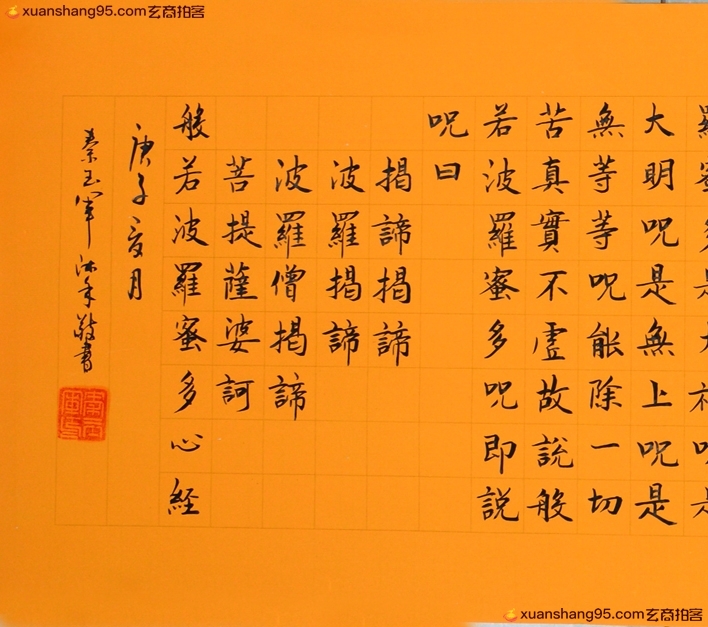 xuanshang95.com玄商拍客
羅蜜多是大神呪是
大明呪是無上呪是
無等等呪能除一切
苦真實不虛故説般
若波羅蜜多呪即説
呪曰
揭諦揭諦
波羅揭諦
波羅僧揭諦
菩提薩婆訶
般若波羅蜜多心経
庚子夏月
秦玉军沐手敬書
xuanshang95.com玄商拍客